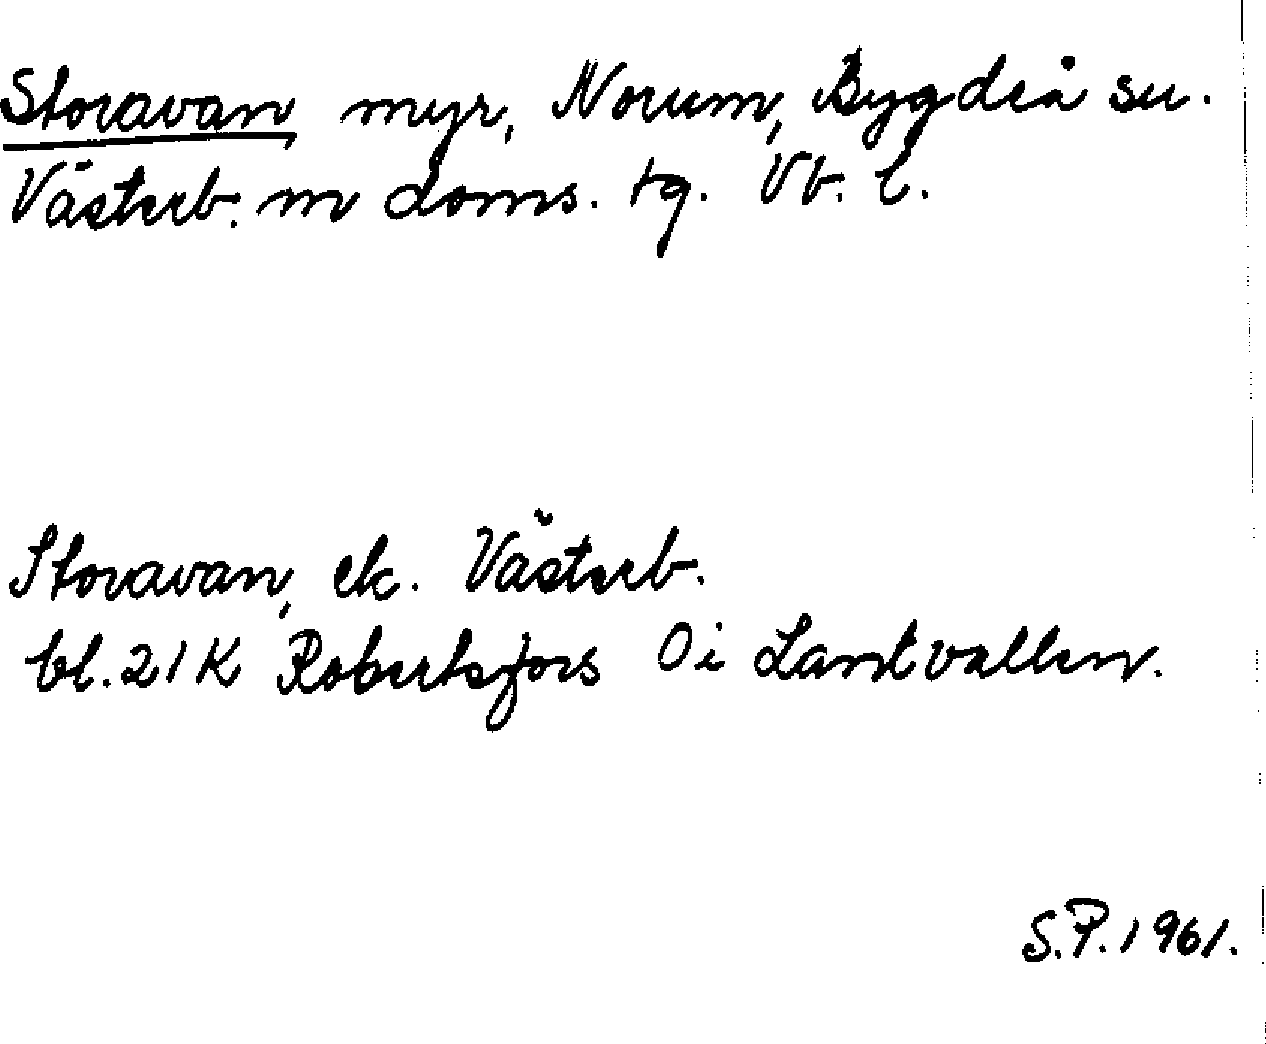 Storavan, myr, Norum, Bygdeå sn.
Västerb. m doms. tg. Vb. l.
Storavan, ek. Västerb.
bl. 21K Robertsfors O i Lantvallen.
S.P. 1961.